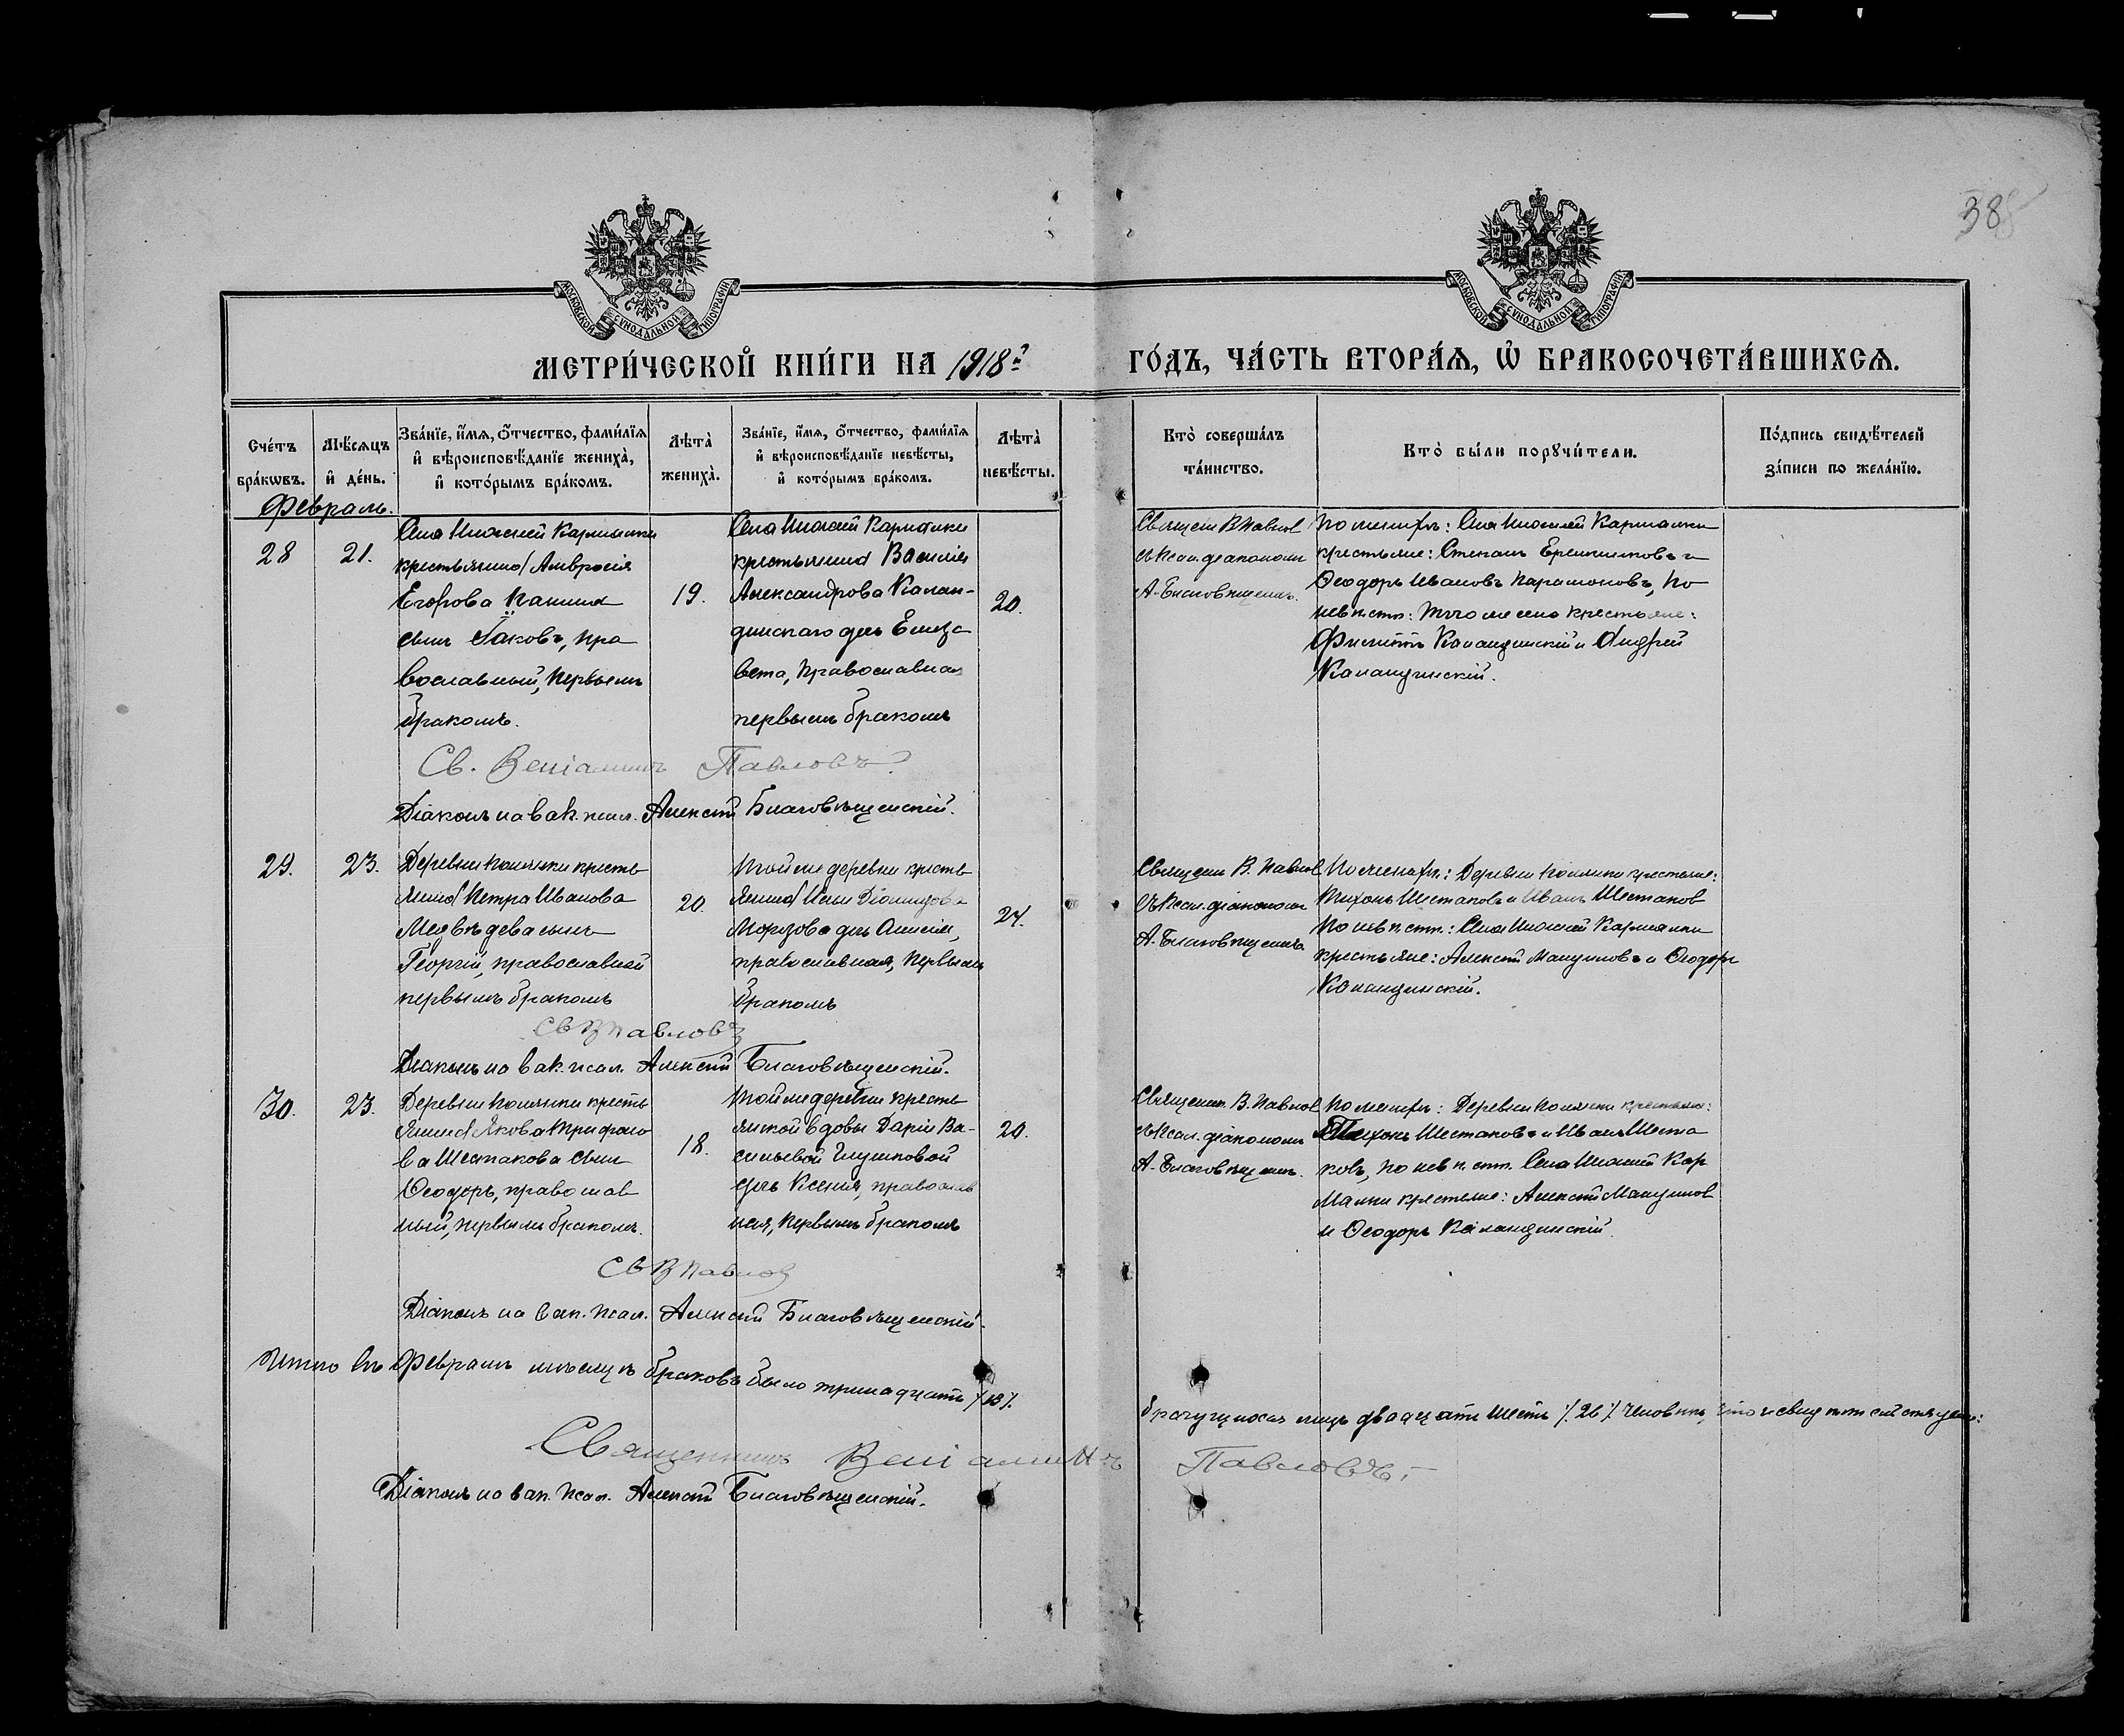 388
МОСКОВСКОЙ СУНОДАЛЬНОЙ ТИПОГРАФІИ
МОСКОВСКОЙ СУНОДАЛЬНОЙ ТИПОГРАФІИ
МЕТРИ́ЧЕСКОЙ КНИ́ГИ НА 1918 ГО́ДЪ, ЧА́СТЬ ВТОРА́Ѧ, Ѡ҆ БРАКОСОЧЕТА́ВШИХСѦ.
Счéтъ бра́кѡвъ.
Мѣ́сѧцъ и҆ де́нь.
Зва́нїе, и҆́мѧ, о҆́тчество, фами́лїѧ
и҆ вѣроисповѣ́данїе жениха̀,
и҆ кото́рымъ бра́комъ.
Лѣта̀ жениха̀.
Зва́нїе, и҆́мѧ, о҆́тчество, фами́лїѧ
и҆ вѣроисповѣ́данїе невѣ́сты,
и҆ кото́рымъ бра́комъ.
Лѣта̀ невѣ́сты.
Кто̀ соверша́лъ та́инство.
Кто̀ бы́ли порꙋчи́тели.
По́дпись свидѣ́телей за́писи по жела́нїю.
Февраль.
28
21.
Села Нижней Кармалки
крестьянина Амвросія
Егорова Панина
сынъ Іаковъ, пра
вославный, первымъ
бракомъ.
19.
Села Нижней Кармалки
крестьянина Василія
Александрова Калан-
динскаго дчь Елиза
вета, православная
первымъ бракомъ
20.
Священ В. Павлов
съ Псал. діакономъ
А. Благовѣщенск.
По женихѣ: Села Нижней Кармалки
крестьяне: Степанъ и
Ѳеодоръ Ивановъ Парамоновъ, по
невѣстѣ: того же села крестьяне:
Филиппъ Каландинскій и Андрей
Каландинскій.
Св. Веніаминъ Павловъ
Діаконъ на вак. псал. Алексій Благовѣщенскій.
29.
23.
Деревни Полянки кресть
янина Петра Иванова
Медвѣдева сынъ
Георгій, православный
первымъ бракомъ
20.
той же деревни кресть
янина Ильи Діомидова
Морозова дчь Анисія,
православная, первымъ
бракомъ
24.
Священ В. Павлов
съ Псал. діакономъ
А. Благовѣщенск
По женихѣ: Деревни Полянки крестьяне:
Тихонъ Шестаковъ и Иванъ Шестаков
По невѣстѣ: Села Нижней Кармалки
крестьяне: Алексій Мандликовъ и Ѳеодоръ
Каландинскій.
Св В Павловъ
Діаконъ на вак. псал. Алексій Благовѣщенскій.
30.
23.
Деревни Полянки кресть
янина Якова Трифоно
ва Шестакова сынъ
Ѳеодоръ, православ
ный, первымъ бракомъ.
18.
той же деревни кресть
янской вдовы Даріи Ва-
сильевой Глушковой
дчь Ксенія, православ
ная, первымъ бракомъ
20.
Священ. В. Павлов
съ Псал. діакономъ
А. Благовѣщенск.
По женихѣ: Деревни Полянки крестьяне:
Тихонъ Шестаковъ и Иванъ Шеста
ковъ, по невѣстѣ Села Нижней Кар
малки крестьяне: Алексій
и Ѳеодоръ Каландинскій.
Св В Павлов
Діаконъ на вак. псал. Алексій Благовѣщенскій.
Итого въ Февралѣ мѣсяцѣ браковъ было тринадцать /13/.
брачущихся лицъ двадцать шесть /26/ человѣкъ, что и свидѣтельствуемъ:
Священникъ Веніаминъ Павловъ.
Діаконъ на вак. псал. Алексій Благовѣщенскій.